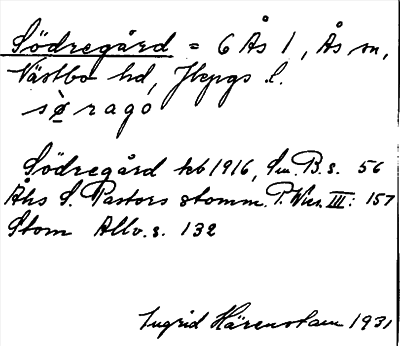 Södregård = 6 Ås 1, Ås sn,
Västbo hd, Jkpgs l.
sø̀rago
Södregård kb 1916, Sm. B. s. 56
Åhs S. Pastors stomm. P. Wies. III: 157
Stom Allv. s. 132
Ingrid Härenstam 1931